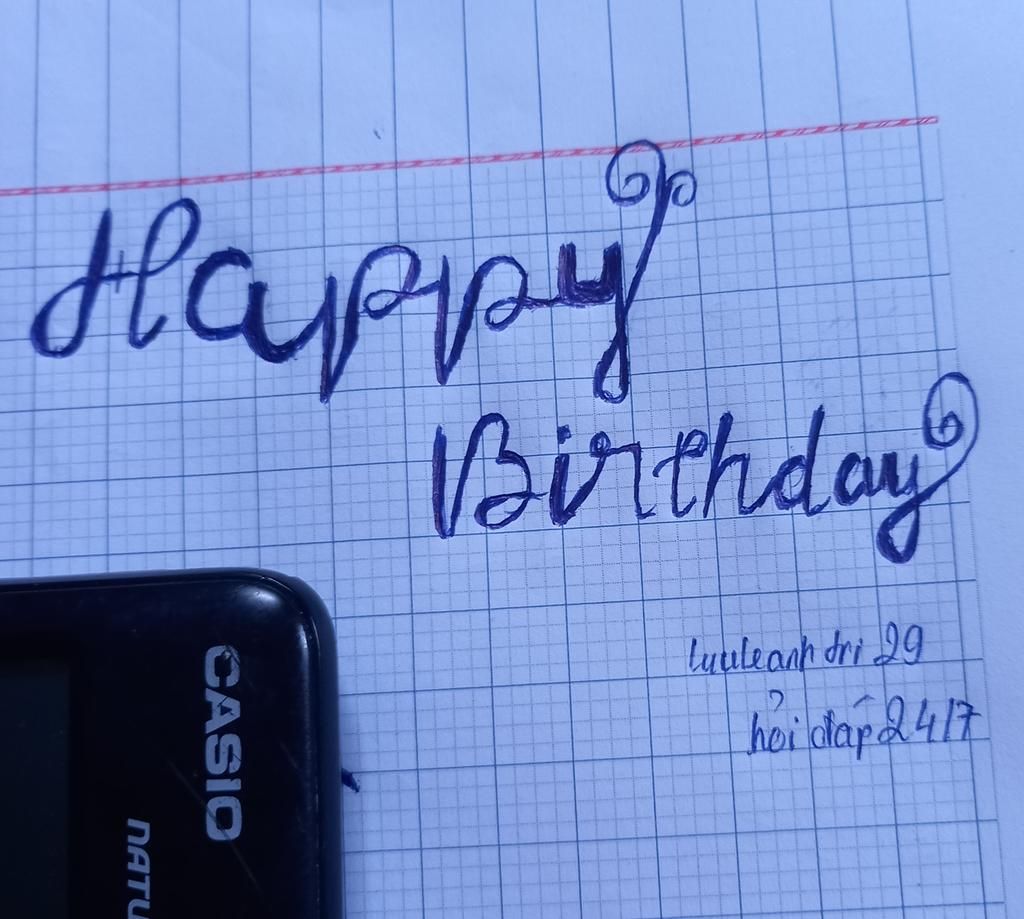 Happy
Birthday
luuleanhtri 29
hỏi đáp 24/7
CASIO
NATU